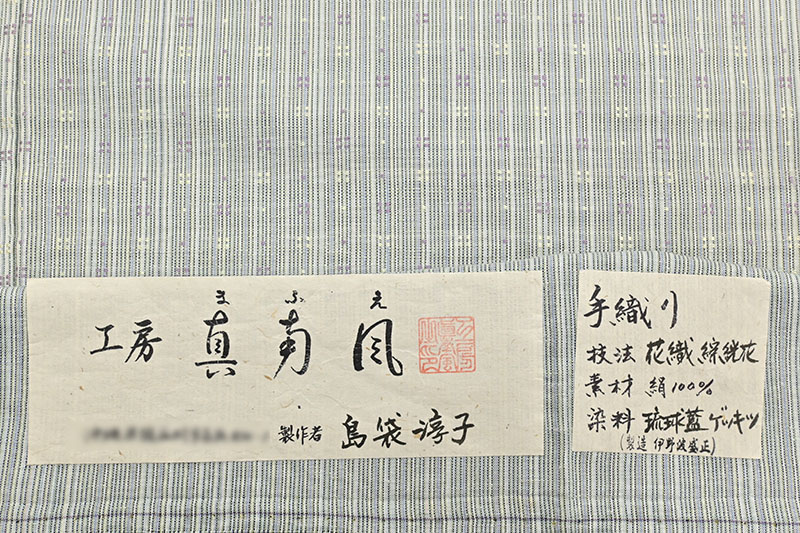 まふえ
工房 真南風
製作者 島袋淳子
手織り
技法 花織 綜絖花
素材 絹100%
染料 琉球藍 ゲッキツ
(製造 伊野波盛正)